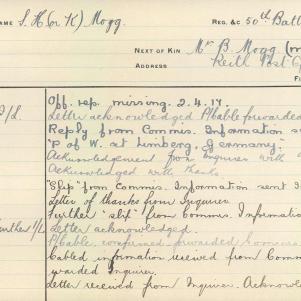 NAME S. H (or K) Mogg. REG. & C 50th Batt
NEXT OF KIN Mr B. Mogg
ADDRESS Keith Post
Off. rep. missing. 2.4.17.
Letter acknowledged P/Cable forwarded
Reply from Commis. Information
"P of W. at Limberg, Germany.
Acknowledgement from Inquirer with
Acknowledged with thanks.
"Slip" from Commis. Information sent
Letter of thanks from Inquirer
Further "slip" from Commis. Information
Further Letter acknowledged.
P/Cable, confirmed forwarded
Cabled information received from Comm
warded Inquirer.
Letter received from Inquirer. Acknowl